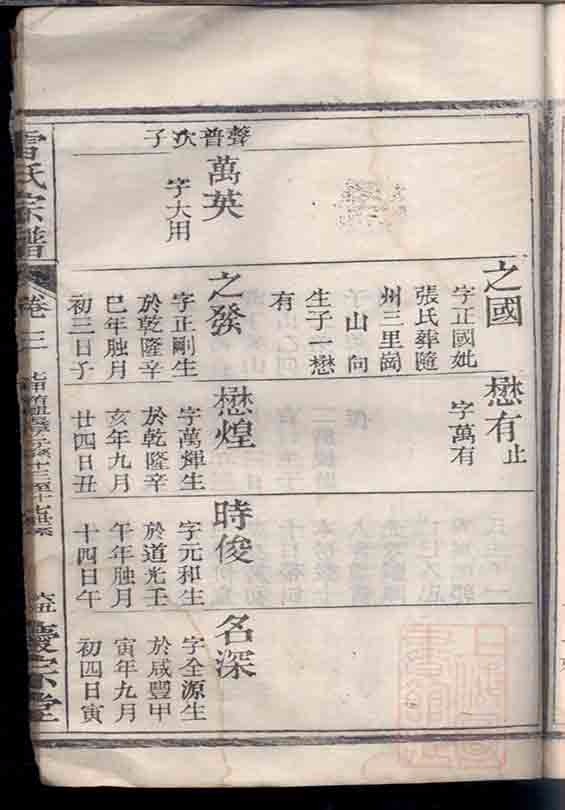 之國
字正國妣
張氏葬隨
州三里崗
子山向
生子一懋
有
懋有止
字萬有
聲普次子
萬英
字大用
之發
字正剛生
於乾隆辛
巳年朏月
初三日子
懋煌
字萬輝生
於乾隆辛
亥年九月
廿四日丑
時俊
字元和生
於道光壬
午年朏月
十四日午
名深
字全源生
於咸豐甲
寅年九月
初四日寅
雷氏宗譜
卷三
慶宗堂